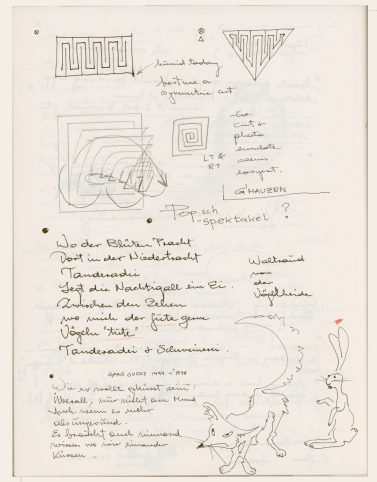 humid today
best use a
symmetric cut
LT &
RT
Go
cut +
photo
emulate
seems
easyest.
G'HAUZEN
Popsch
-spektakel ?
Wo der Blüten Pracht
Dort in der Niedertracht
Tanderadei
Legt die Nachtigall ein Ei.
Zwischen den Zehen
wo mich der gute gerne
Vögeln "tute"
Tanderadei & Schweinerei.
Waltraud
von
der
Vöglheide
HANS SUCHS 1494 - 1556
Wie es wollt geküsst sein!
Überall, nur nicht am Mund
Auch wenn es mehr
als ungesund.
Es braucht auch niemand
wissen wo wir einander
Küssen..